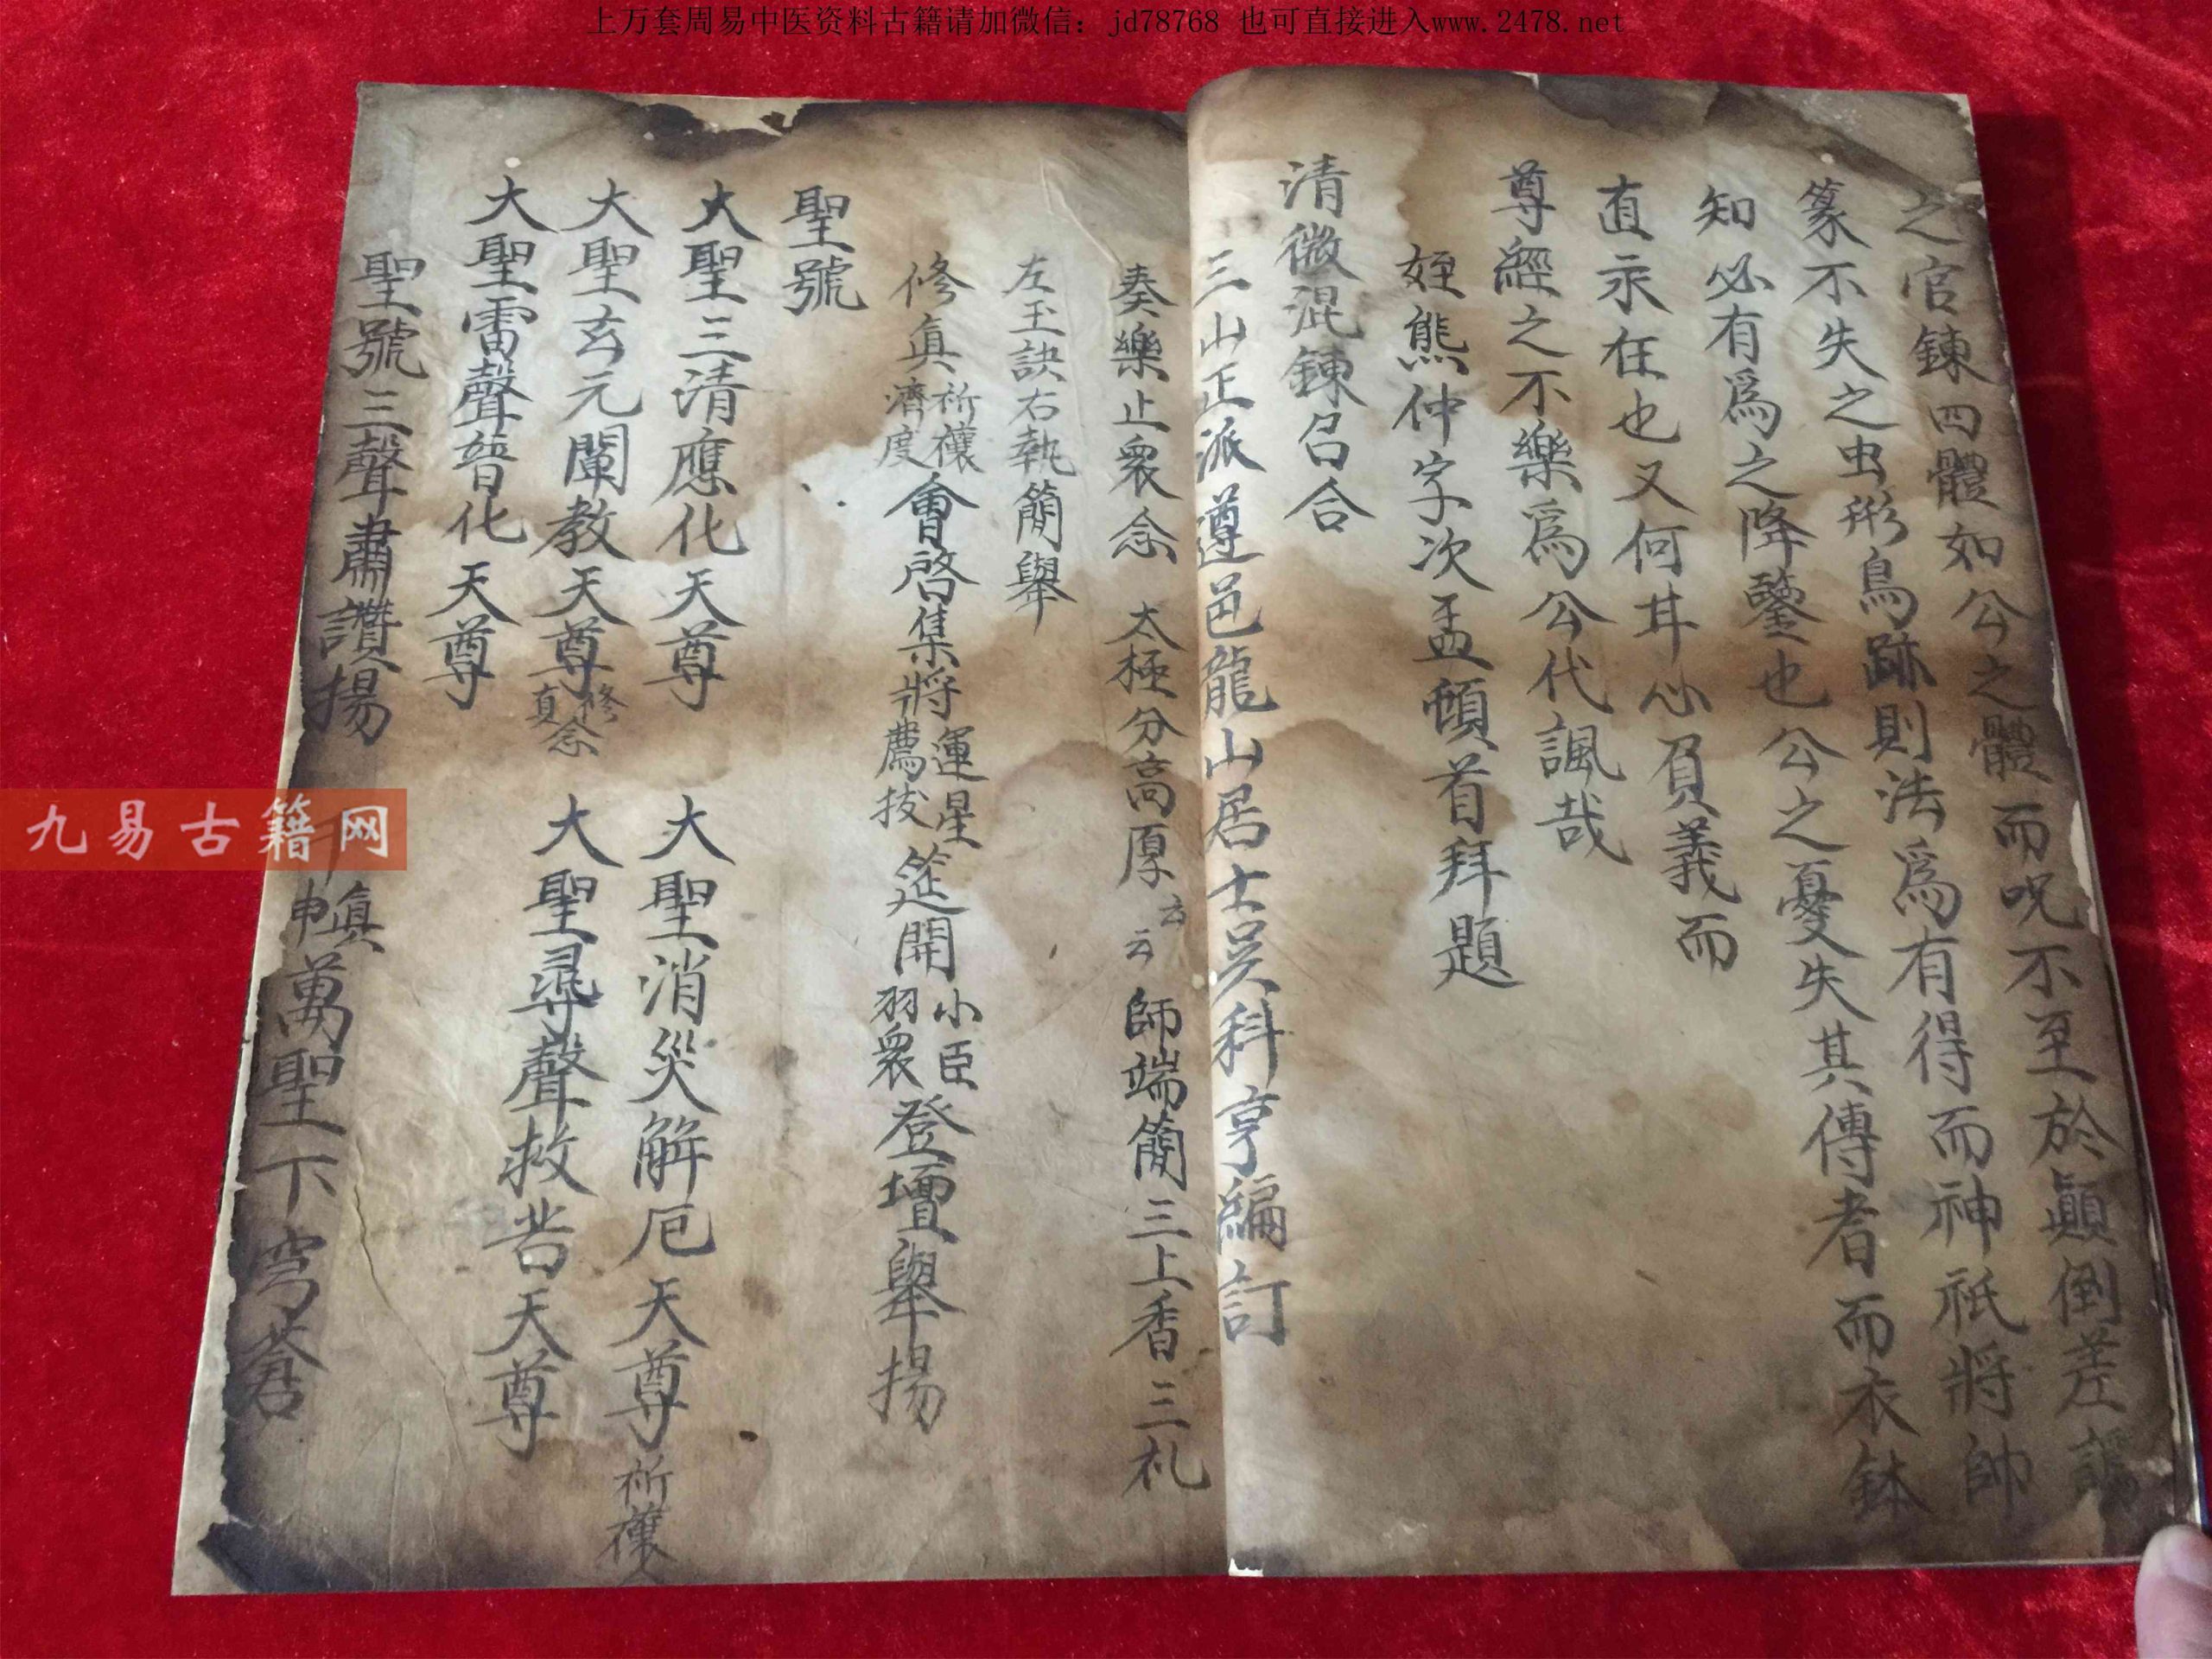 上万套周易中医资料古籍请加微信：jd78768 也可直接进入www.2478.net
之官鍊四體如公之體而呪不至於顚倒差譌
篆不失之虫形鳥跡則法爲有得而神祇將帥
知必有爲之降鑒也公之憂失其傳者而衣鉢
直永在也又何其心負義而
尊經之不樂爲公代諷哉
姪熊仲字次孟頓首拜題
清微混鍊召合
三山正派遵邑龍山居士吴科亨編訂
奏樂止衆念 太極分高厚云云 師端簡三上香三礼
左玉訣右執簡舉
修眞祈禳濟度會啓集將運星薦拔筵開小臣羽衆登壇舉揚
聖號
大聖三清應化天尊 大聖消災解厄天尊祈禳
大聖玄元闡教天尊修真念 大聖尋聲救苦天尊
大聖雷聲普化天尊
聖號三聲肅讚揚 幀萬聖下穹蒼
九易古籍网